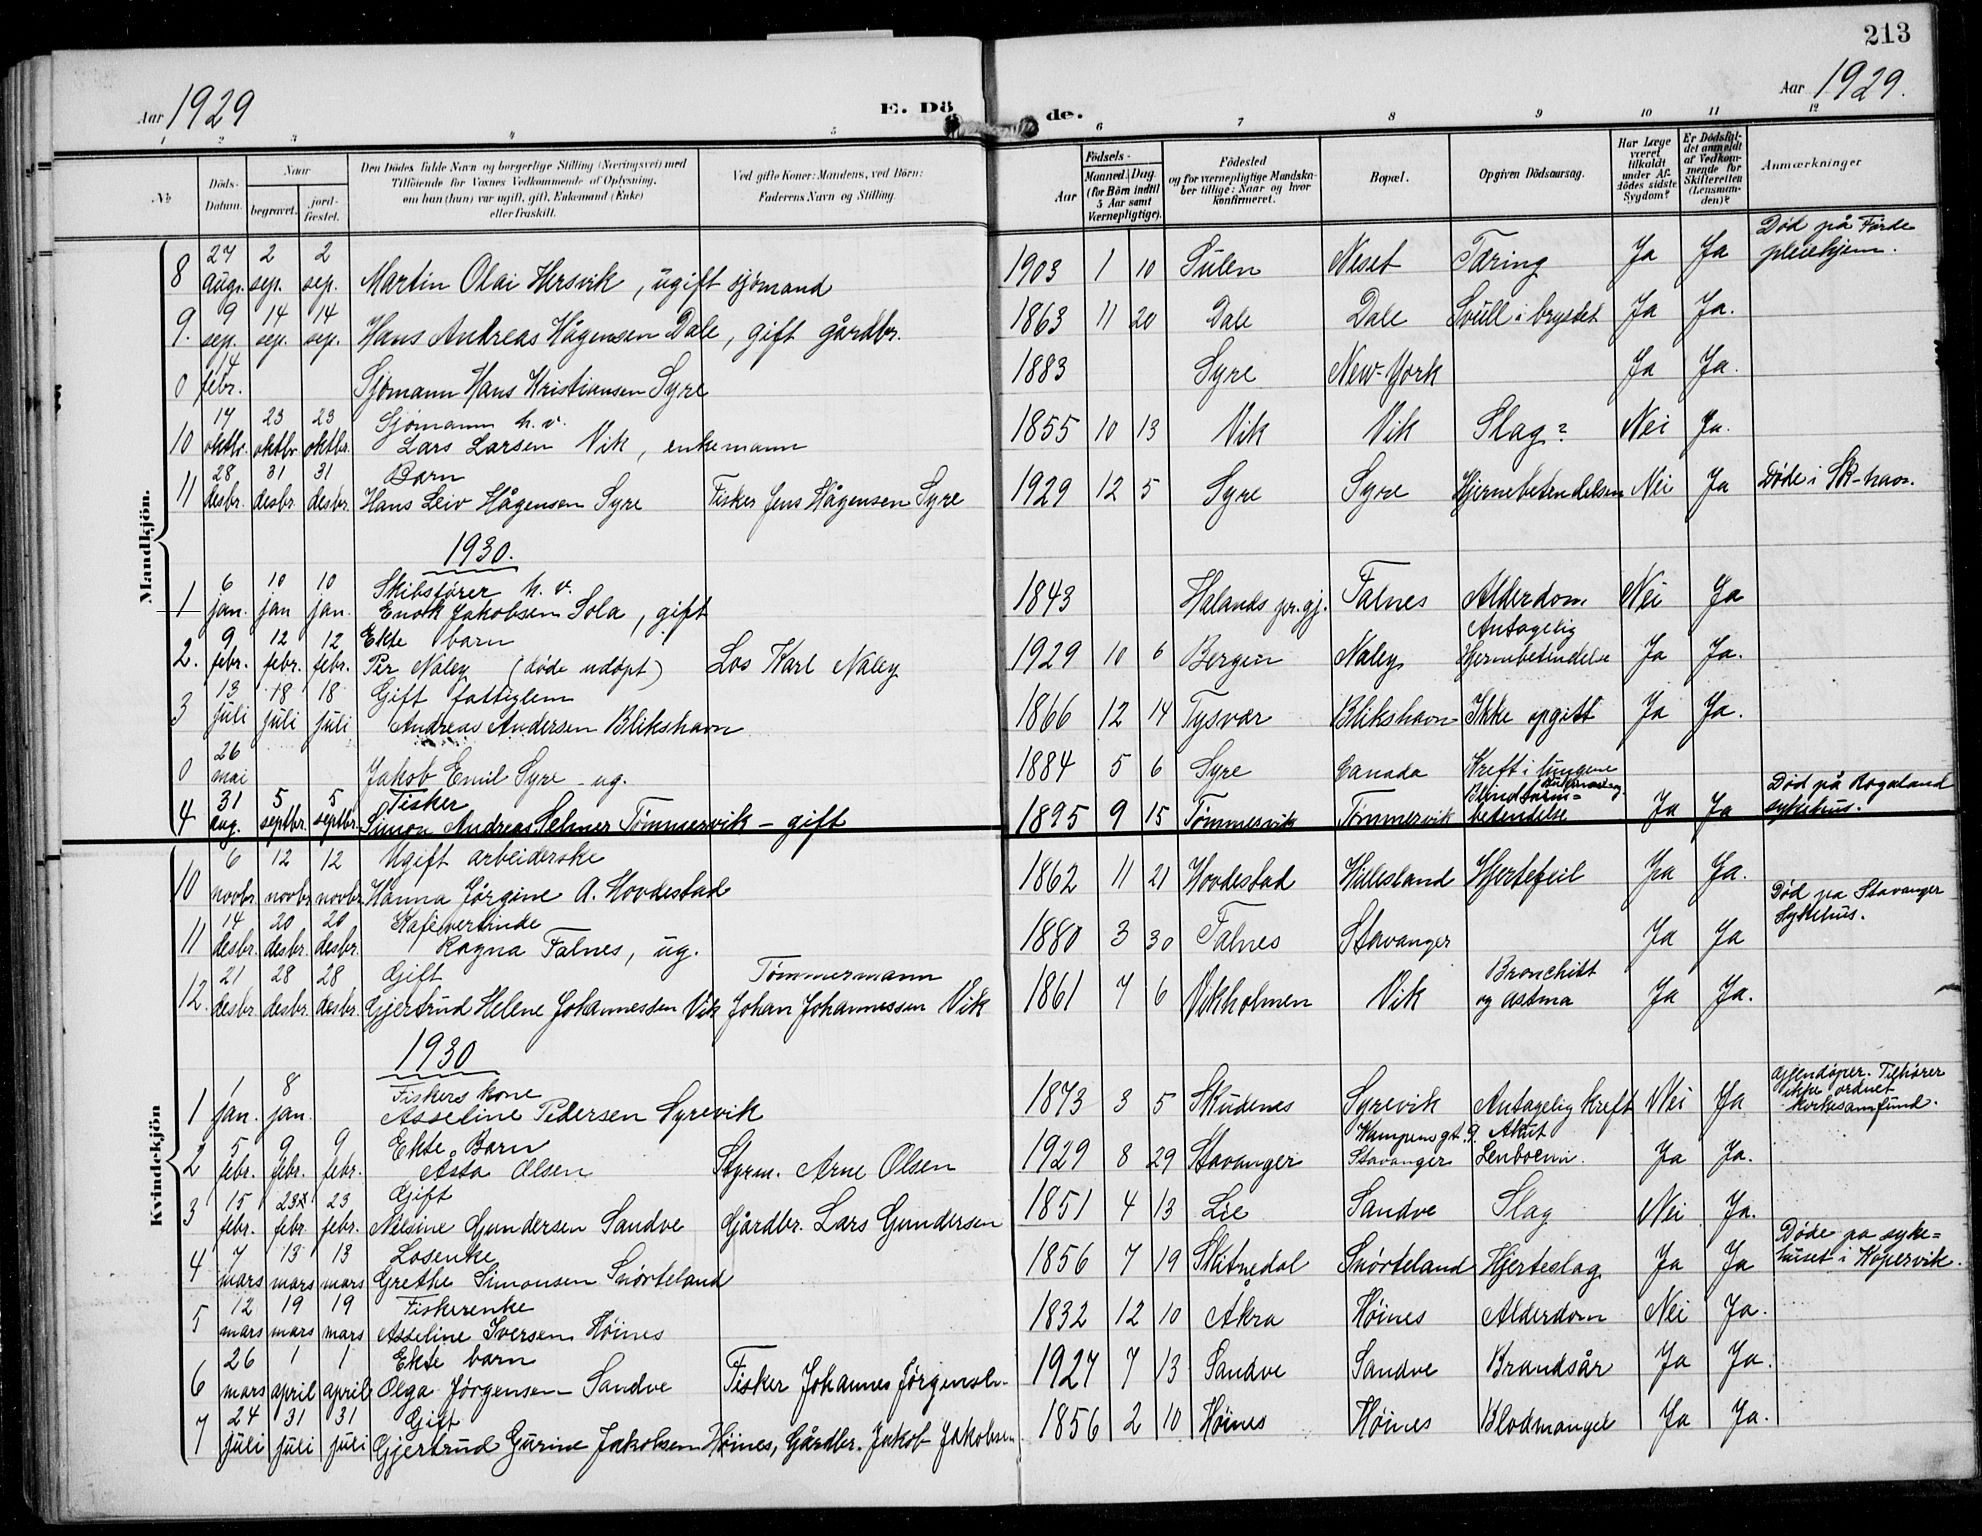 213
Aar 1929 E. Dö de. Aar 1929.
1 2 3 4 5 6 7 8 9 10 11 12
№ Döds-Datum. Naar begravet. jord-fæstet. Den Dödes fulde Navn og borgerlige Stilling (Næringsvei) med Tilföiende for Voxnes Vedkommende af Oplysning, om han (hun) var ugift, gift, Enkemand (Enke) eller fraskilt. Ved gifte Koner: Mandens, ved Börn: Faderens Navn og Stilling. Aar Födsels- Maaned. Dag. (for Börn indtil 5 Aar samt Værnepligtige). Födested og for værnepligtige Mandskaber tillige: Naar og hvor konfirmeret. Bopæl. Opgiven Dödsaarsag. Har Læge været tilkaldt under Afdödes sidste Sygdom? Er Dödsfaldet anmeldt af Vedkommende for Skifteretten (Lensmanden)? Anmærkninger
Mandkjön.
8 27 aug. 2 sep. 2 sep. Martin Olai Hersvik, ugift sjømand 1903 1 10 Sulen Neset Tæring Ja Ja Død på Førde pleiehjem.
9. 9 sep. 14 sep. 14 sep. Hans Andreas Hågensen Dale, gift gårdbr. 1863 11 20 Dale Dale Svull i brystet Ja Ja.
0 14 febr. Sjømann Hans Kristiansen Syre 1883 Syre New-York Ja Ja.
10 17 oktbr. 23 oktbr. 23 oktbr. Sjømann h.v. Lars Larsen Vik, enkemann 1855 10 13 Vik Vik Slag? Nei Ja.
11 28 desbr. 31 desbr. 31 desbr. Barn Hans Leiv Hågensen Syre Fisker Jens Hågensen Syre 1929 12 5 Syre Syre Hjernebetendelsen Nei Ja Døde i Sk-havn.
1930.
1 6 jan. 10 jan 10 jan. Skibsfører h.v. Enok Jakobsen Sola, gift 1843 Halands pr.gj. Falnes Alderdom Nei Ja
2. 9 febr. 12 febr. 12 febr. Ekte barn Per Naley (døde udøpt) Los Karl Naley 1929 10 6 Bergen Naley Antagelig Hjernebetendelse Ja Ja.
3 13 juli 18 juli 18 juli Gift fattiglem Andreas Andersen Blikshavn 1866 12 14 Tysvær Blikshavn Ikke opgitt Ja Ja.
0 26 mai Jakob Emil Syre - ug. 1884 5 6 Syre Canada Kreft i lungene
4 31 aug. 5 septbr. 5 septbr. Fisker Simon Andreas Selmer Tømmervik - gift 1895 9 15 Tømmervik Tømmervik Blindtarm= betendelse Ja Ja Død på Rogaland sykehus.
Kvindekjön
10 6 novbr. 12 novbr. 12 novbr. Ugift arbeiderske Hanna Jørgine A. Hovdestad 1862 11 21 Hovdestad Hillesland Hjertefeil Ja Ja.
11 14 desbr. 20 desbr. 20 desbr. Kafévertinde Ragna Falnes, ug. 1880 3 30 Falnes Stavanger Ja Ja Død pa Stavanger Sykehus.
12. 21 desbr. 28 desbr. 28 desbr. Gift Gjertrud Helene Johannessen Vik Tømmermann Johan Johannessen Vik 1861 7 6 Vikholmen Vik Bronchitt og astma Ja Ja.
1930
1 1 jan. 8 jan. Fiskers kone Asseline Pedersen Syrevik 1873 3 5 Skudenes Syrevik Antagelig kreft Nei Ja Gjendøper. Tilhører ikke ordnet kirkesamfund.
2 5 febr. 9 febr. 9 febr. Ekte Barn Åsta Olsen Styrm. Arne Olsen 1929 8 29 Stavanger Kampens gt. 9. Stavanger Akut Ja Ja.
3 15 febr. 23 febr. 23 febr. Gift Nilsine Gundersen Sandve Gårdbr. Lars Gundersen 1851 4 13 Lie Sandve Slag Nei Ja.
4 7 mars 13 mars 13 mars Losenke Grethe Simonsen Snørteland 1856 7 19 Skitnedal Snørteland Hjerteslag Ja Ja Døde pa syke= huset i Kopervik.
5 12 mars 19 mars 19 mars Fiskerenke Asseline Iversen Høines 1832 12 10 Åkra Høines Alderdom Nei Ja.
6 26 mars 1 april 1 april Ekte barn Olga Jørgensen Sandve Fisker Johannes Jørgensen 1927 7 13 Sandve Sandve Brandsår Ja Ja.
7 24 juli 31 juli 31 juli Gift Gjertrud Gurine Jakobsen Høines, Gårdbr. Jakob Jakobsen 1856 2 10 Høines Høines Blodmangel Ja Ja.